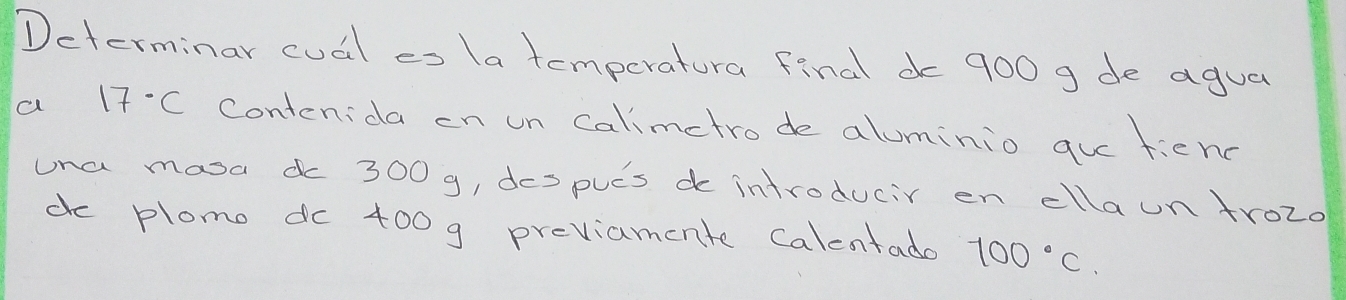 Determinar cuál es la temperatura final de 900 g de agua
a 17°C contenida en un calímetro de aluminio que tiene
una masa de 300 g, después de introducir en ella un trozo
de plomo de 400 g previamente calentado 100°C.